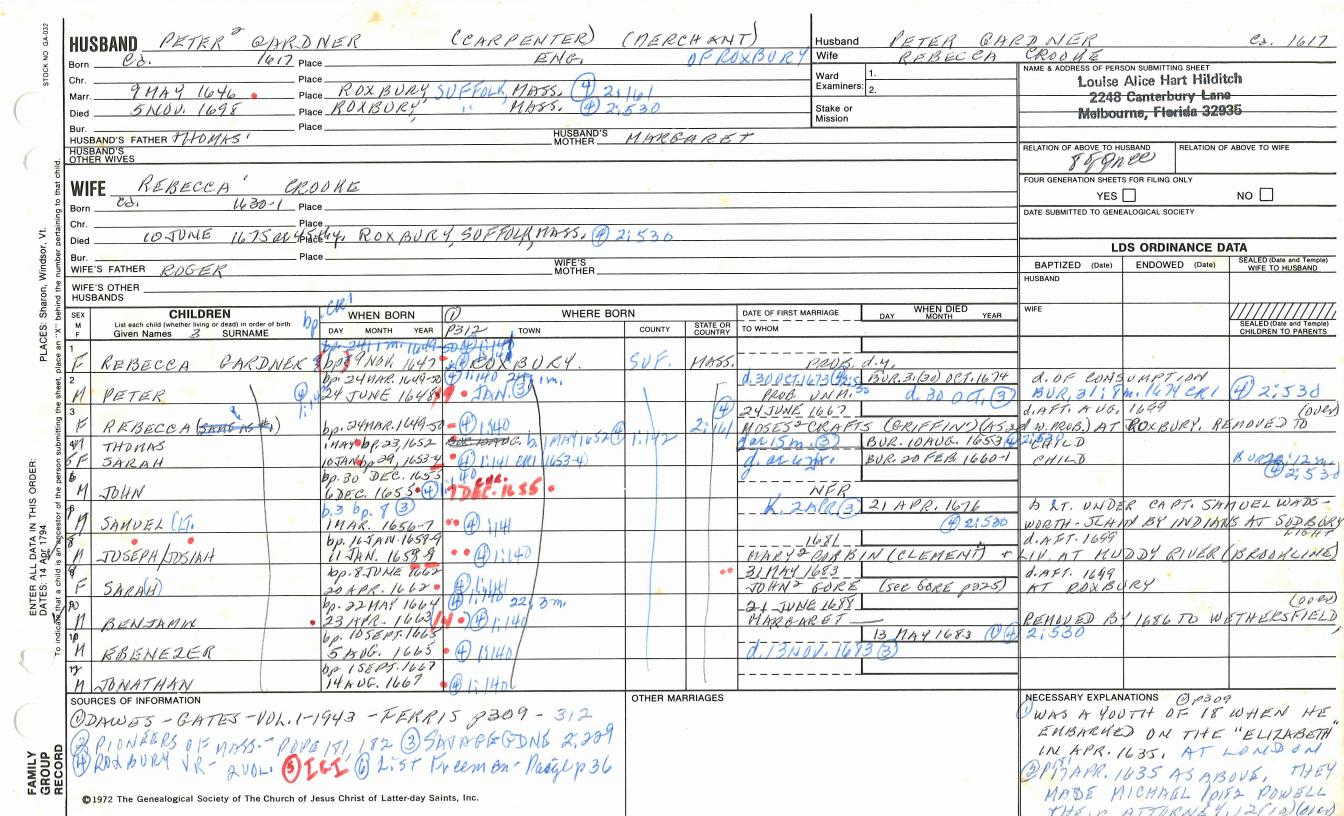 STOCK NO GA-032
HUSBAND PETER² GARDNER (CARPENTER) (MERCHANT)
Born Ca. 1617 Place ENG. OF ROXBURY
Chr. Place
Marr. 9 MAY 1646 Place ROXBURY, SUFFOLK, MASS. ④ 2:161
Died 5 NOV. 1698 Place ROXBURY, " MASS. ④ 2:530
Bur. Place
HUSBAND'S FATHER THOMAS¹ HUSBAND'S MOTHER MARGARET
HUSBAND'S OTHER WIVES
Husband PETER GARDNER Ca. 1617
Wife REBECCA CROOKE
Ward Examiners: 1.
2.
Stake or Mission
NAME & ADDRESS OF PERSON SUBMITTING SHEET
Louise Alice Hart Hilditch
2248 Canterbury Lane
Melbourne, Florida 32935
RELATION OF ABOVE TO HUSBAND RELATION OF ABOVE TO WIFE
FOUR GENERATION SHEETS FOR FILING ONLY
YES NO
DATE SUBMITTED TO GENEALOGICAL SOCIETY
WIFE REBECCA¹ CROOKE
Born Ca. 1630-1 Place
Chr. Place
Died 10 JUNE 1675 Place ROXBURY, SUFFOLK, MASS. ④ 2:530
Bur. Place
WIFE'S FATHER ROGER WIFE'S MOTHER
WIFE'S OTHER HUSBANDS
LDS ORDINANCE DATA
BAPTIZED (Date) ENDOWED (Date) SEALED (Date and Temple) WIFE TO HUSBAND
HUSBAND
WIFE
SEALED (Date and Temple) CHILDREN TO PARENTS
SEX M F CHILDREN List each child (whether living or dead) in order of birth Given Names 3 SURNAME bp. CR1
WHEN BORN DAY MONTH YEAR
① P312 WHERE BORN TOWN COUNTY STATE OR COUNTRY
DATE OF FIRST MARRIAGE TO WHOM
WHEN DIED DAY MONTH YEAR
1 F REBECCA GARDNER 9 NOV. 1647 ROXBURY. SUF. MASS. PROB. d.y.
2 bp. 24 MAR. 1649-50 ④ 1:140 d. 30 OCT. 1673 BUR. 31 (30) OCT. 1674 d. OF CONSUMPTION
M PETER 24 JUNE 1648 JAN. ③ PROB. UNM. d. 30 OCT. ③ BUR. 31; 8m. 1674 CR1 ④ 2:530
3 bp. 24 MAR. 1649-50 ④ 1:140 24 JUNE 1667 d. AFT. AUG. 1699 (over)
F REBECCA (SAME AS #1) ④ 2:161 MOSES² CRAFTS (GRIFFIN) AT ROXBURY. REMOVED TO
4 M THOMAS 1 MAY bp. 23, 1652 b. 1 MAY 1652 ④ 1:142 d. ae 15m. ③ BUR. 10 AUG. 1653 CHILD
5 F SARAH 10 JAN. bp. 29, 1653-4 ④ 1:141 CR1 (1653-4) BUR. 20 FEB. 1660-1 CHILD ④ 2:530
6 bp. 30 DEC. 1655
M JOHN 6 DEC. 1655 ④ 7 DEC. 1655 NFR
b. 3 bp. 8 ③ K. 2 APR ③ 21 APR. 1676 A LT. UNDER CAPT. SAMUEL WADS-
M SAMUEL (LT. 1 MAR. 1656-7 ④ 1:141 ④ 2:530 WORTH-SLAIN BY INDIANS AT SUDBURY FIGHT
bp. 16 JAN. 1658-9 1681 d. AFT. 1699
M JOSEPH/JOSIAH 11 JAN. 1658-9 ④ 1:140 MARY² CORBIN (CLEMENT) LIV. AT MUDDY RIVER (BROOKLINE)
bp. 8 JUNE 1662 31 MAY 1683 d. AFT. 1699
F SARA(H) 20 APR. 1662 ④ 1:141 JOHN² GORE (SEE GORE p325) AT ROXBURY
bp. 22 MAY 1664 22, 3m. 21 JUNE 1688 (over)
M BENJAMIN 23 APR. 1663/4 ④ 1:140 MARGARET — REMOVED BY 1686 TO WETHERSFIELD
bp. 10 SEPT. 1665 13 MAY 1683 ①④ 2:530
M EBENEZER 5 AUG. 1665 ④ 1:140 d. 13 NOV. 1683 ③
bp. 1 SEPT. 1667
M JONATHAN 14 AUG. 1667 ④ 1:140
SOURCES OF INFORMATION
① DAWES-GATES-VOL. 1-1943-FERRIS p309-312
② PIONEERS OF MASS-POPE 181, 182 ③ SAVAGE GDNE 2:229
④ ROXBURY VR- 2 VOL. ⑤ IGI ⑥ List Freemen-Paige p36
OTHER MARRIAGES
NECESSARY EXPLANATIONS ① p309
① WAS A YOUTH OF 18 WHEN HE
EMBARKED ON THE "ELIZABETH"
IN APR. 1635, AT LONDON
② APR. 1635 AS ABOVE, THEY
MADE MICHAEL POWELL
THEIR ATTORNEY
©1972 The Genealogical Society of The Church of Jesus Christ of Latter-day Saints, Inc.
FAMILY GROUP RECORD
ENTER ALL DATA IN THIS ORDER:
DATES: 14 Apr 1794
PLACES: Sharon, Windsor, Vt.
To indicate that a child is an ancestor of the person submitting the sheet, place an "X" behind the number pertaining to that child.